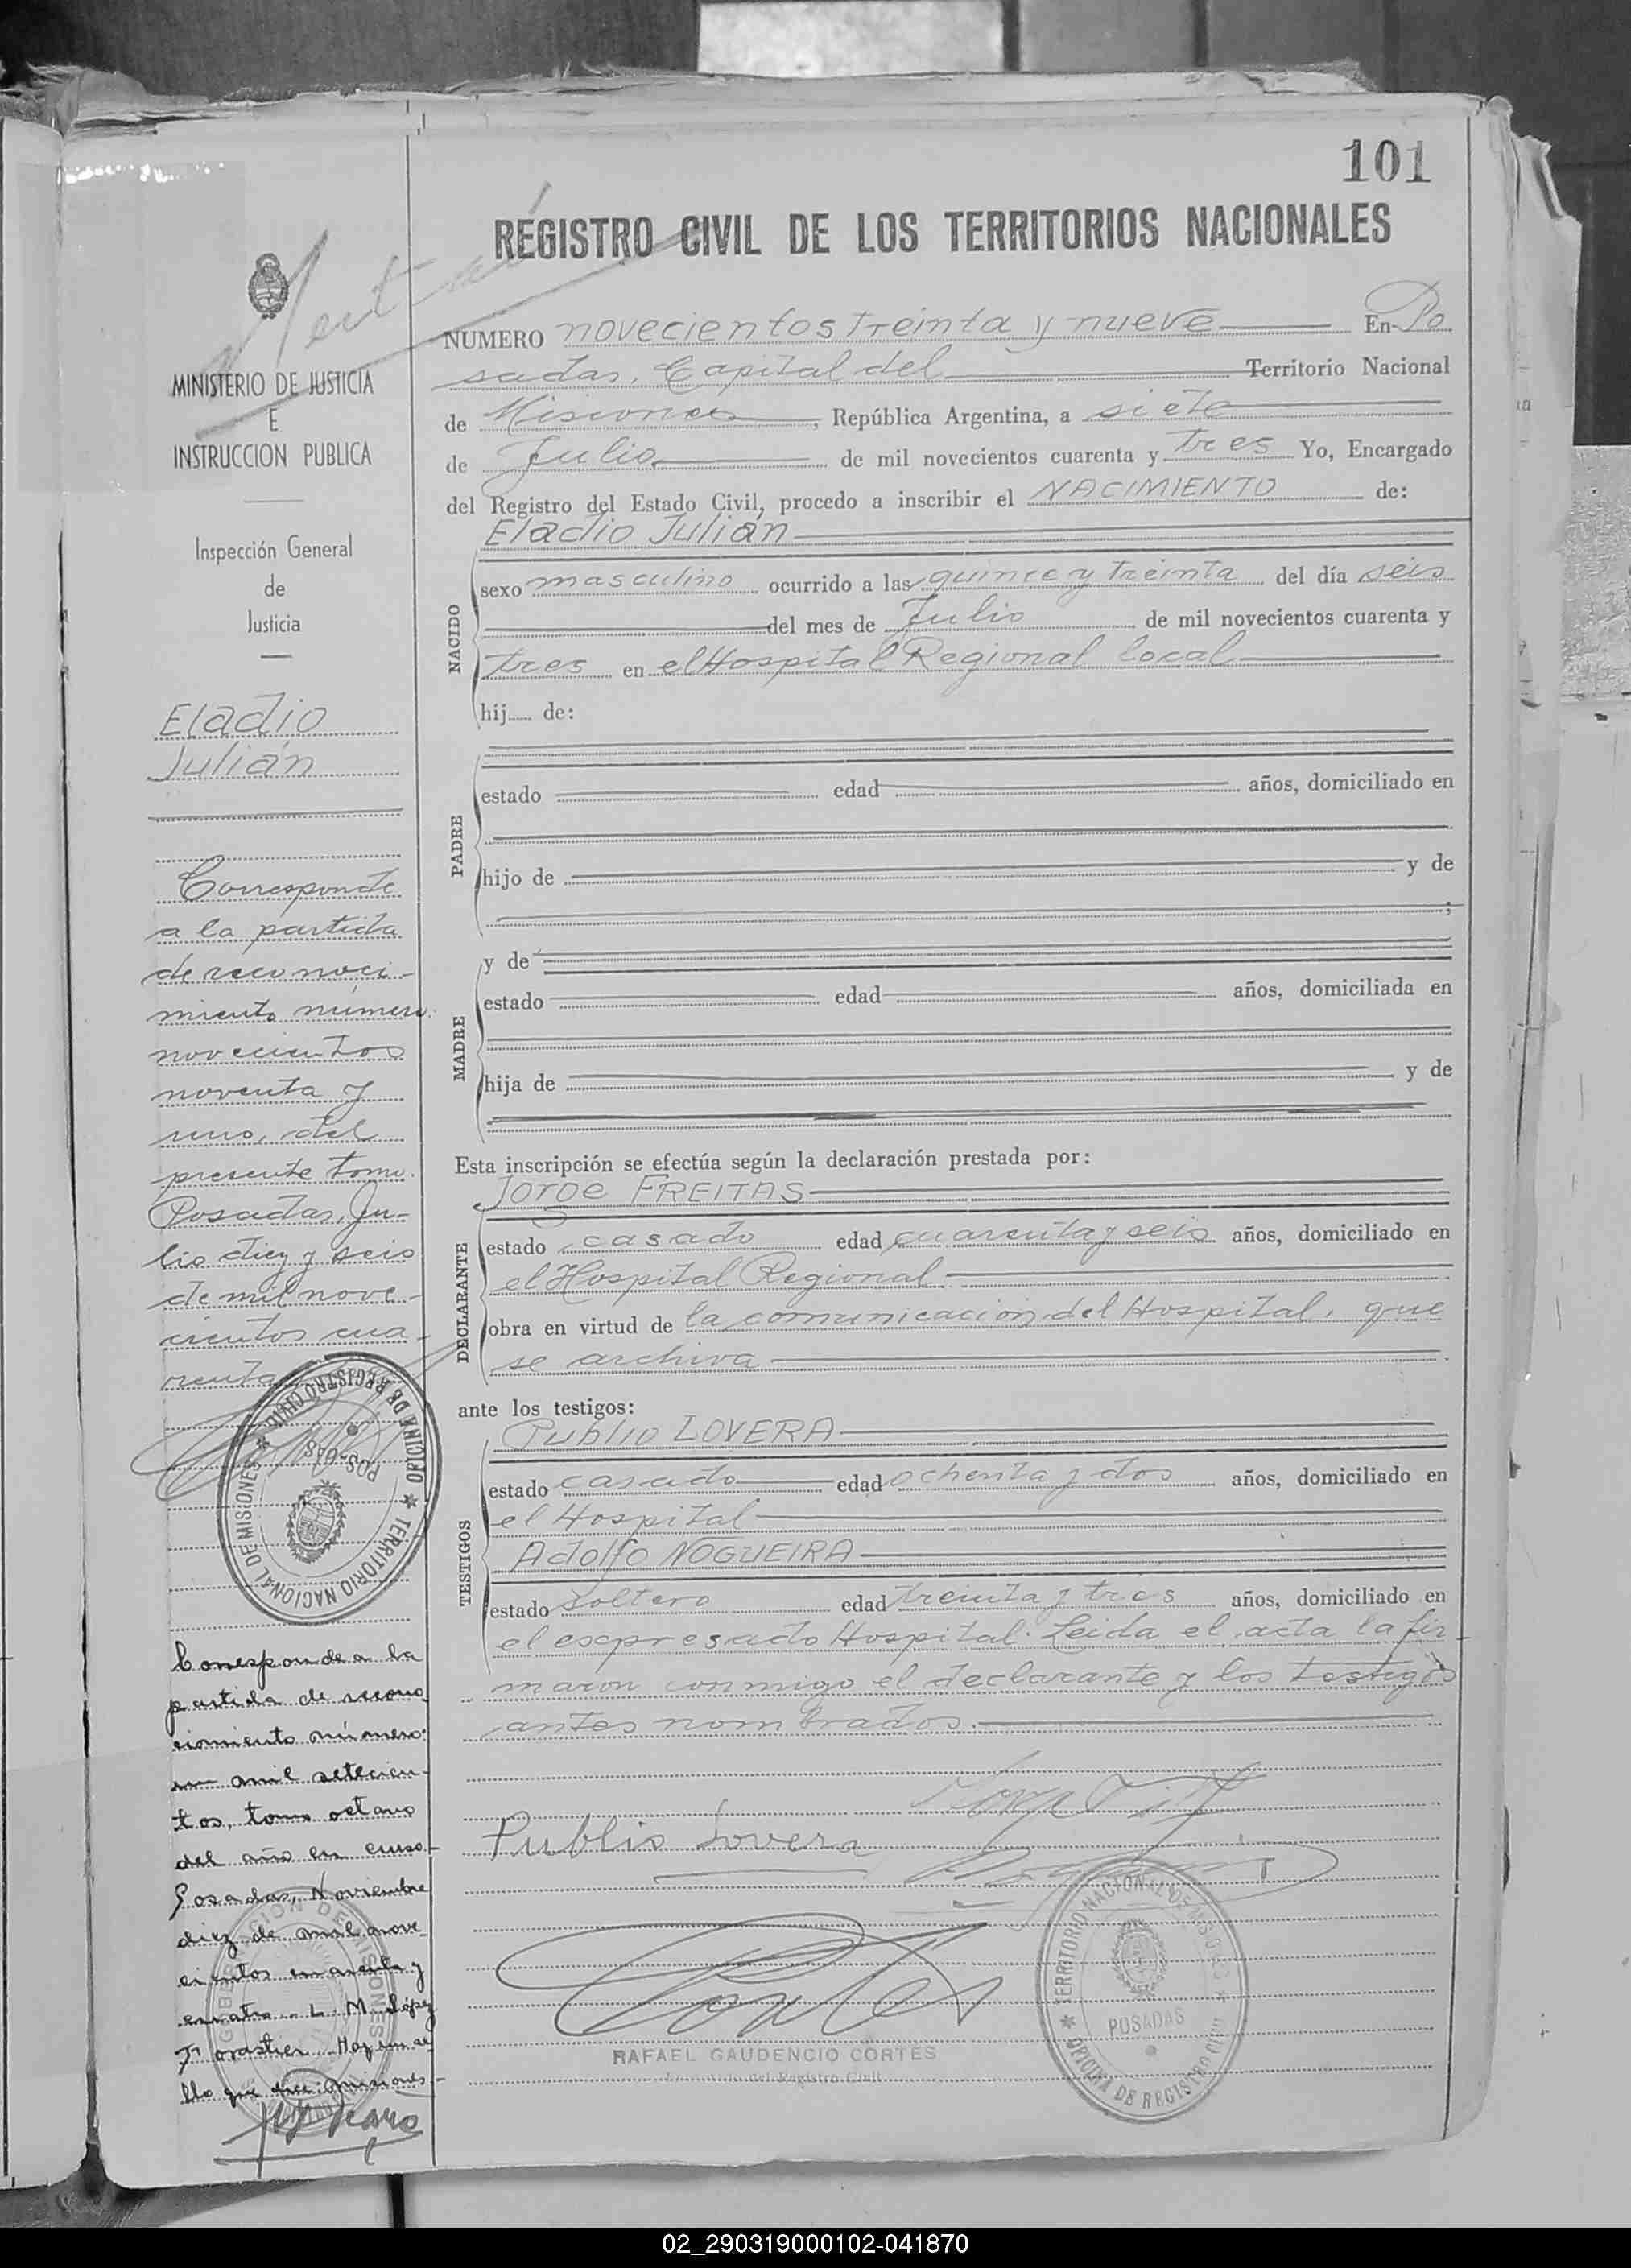 101
REGISTRO CIVIL DE LOS TERRITORIOS NACIONALES
MINISTERIO DE JUSTICIA
E
INSTRUCCION PUBLICA
Inspección General
de
Justicia
Eladio
Julián
Corresponde
a la partida
de reconoci-
miento número
novecientos
noventa y
uno, del
presente tomo.
Posadas, Ju-
lio diez y seis
de mil nove-
cientos cua-
renta
OFICINA DE REGISTRO CIVIL * TERRITORIO NACIONAL DE MISIONES *
POSADAS
Corresponde a la
partida de recono
cimiento número:
un mil setecien-
tos, tomo octavo
del año en curso.-
Posadas, Noviembre
diez de mil nove
cientos cuarenta y
cuatro. L. M. López
Forastier. Hay un se
llo que dice: Misiones.-
NUMERO novecientos treinta y nueve En Po
sadas, Capital del Territorio Nacional
de Misiones, República Argentina, a siete
de Julio de mil novecientos cuarenta y tres Yo, Encargado
del Registro del Estado Civil, procedo a inscribir el NACIMIENTO de:
Eladio Julián
NACIDO
sexo masculino ocurrido a las quince y treinta del día seis
del mes de Julio de mil novecientos cuarenta y
tres en el Hospital Regional local
hij..... de:
PADRE
estado edad años, domiciliado en
hijo de y de
;
MADRE
y de
estado edad años, domiciliada en
hija de y de
Esta inscripción se efectúa según la declaración prestada por:
Jorge FREITAS
DECLARANTE
estado casado edad cuarenta y seis años, domiciliado en
el Hospital Regional
obra en virtud de la comunicación del Hospital, que
se archiva
ante los testigos:
Publio LOVERA
TESTIGOS
estado casado edad ochenta y dos años, domiciliado en
el Hospital
Adolfo NOGUEIRA
estado soltero edad treinta y tres años, domiciliado en
el expresado Hospital. Leida el acta la fir-
maron conmigo el declarante y los testigos
antes nombrados.
Publio Lovera
Cortes
RAFAEL GAUDENCIO CORTES
Encargado del Registro Civil
* TERRITORIO NACIONAL DE MISIONES * OFICINA DE REGISTRO CIVIL
POSADAS
02_290319000102-041870